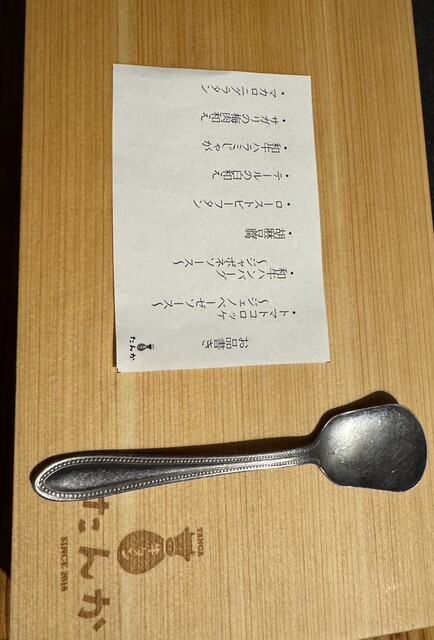 お品書き
・トマトコロッケ
〜ジェノベーゼソース〜
・和牛ハンバーグ
〜ジャポネソース〜
・胡麻豆腐
・ローストビーフタン
・テールの白和え
・和牛ハラミじゃが
・サガリの梅肉和え
・マカロニグラタン
たんか
TANCA
牛タン
たんか
SINCE 2018